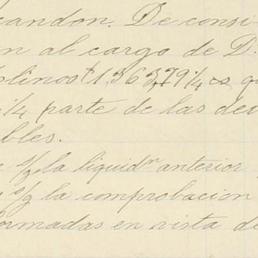 andon. De consi
n al cargo de D.
olinos $1.363,79 1/4 cs q
1/4 parte de las de
bles.
s/ la liquidn anterior
s/ la comprobacion
ormadas en vista de